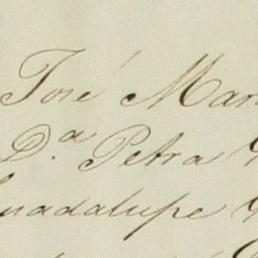 José Mar
D.a Petra
uadalupe